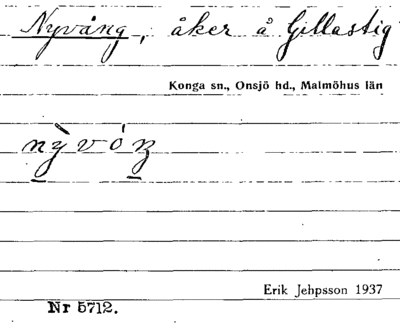 Nyvång, åker å Gillastig
Konga sn., Onsjö hd., Malmöhus län
Erik Jehpsson 1937
Nr 5712.